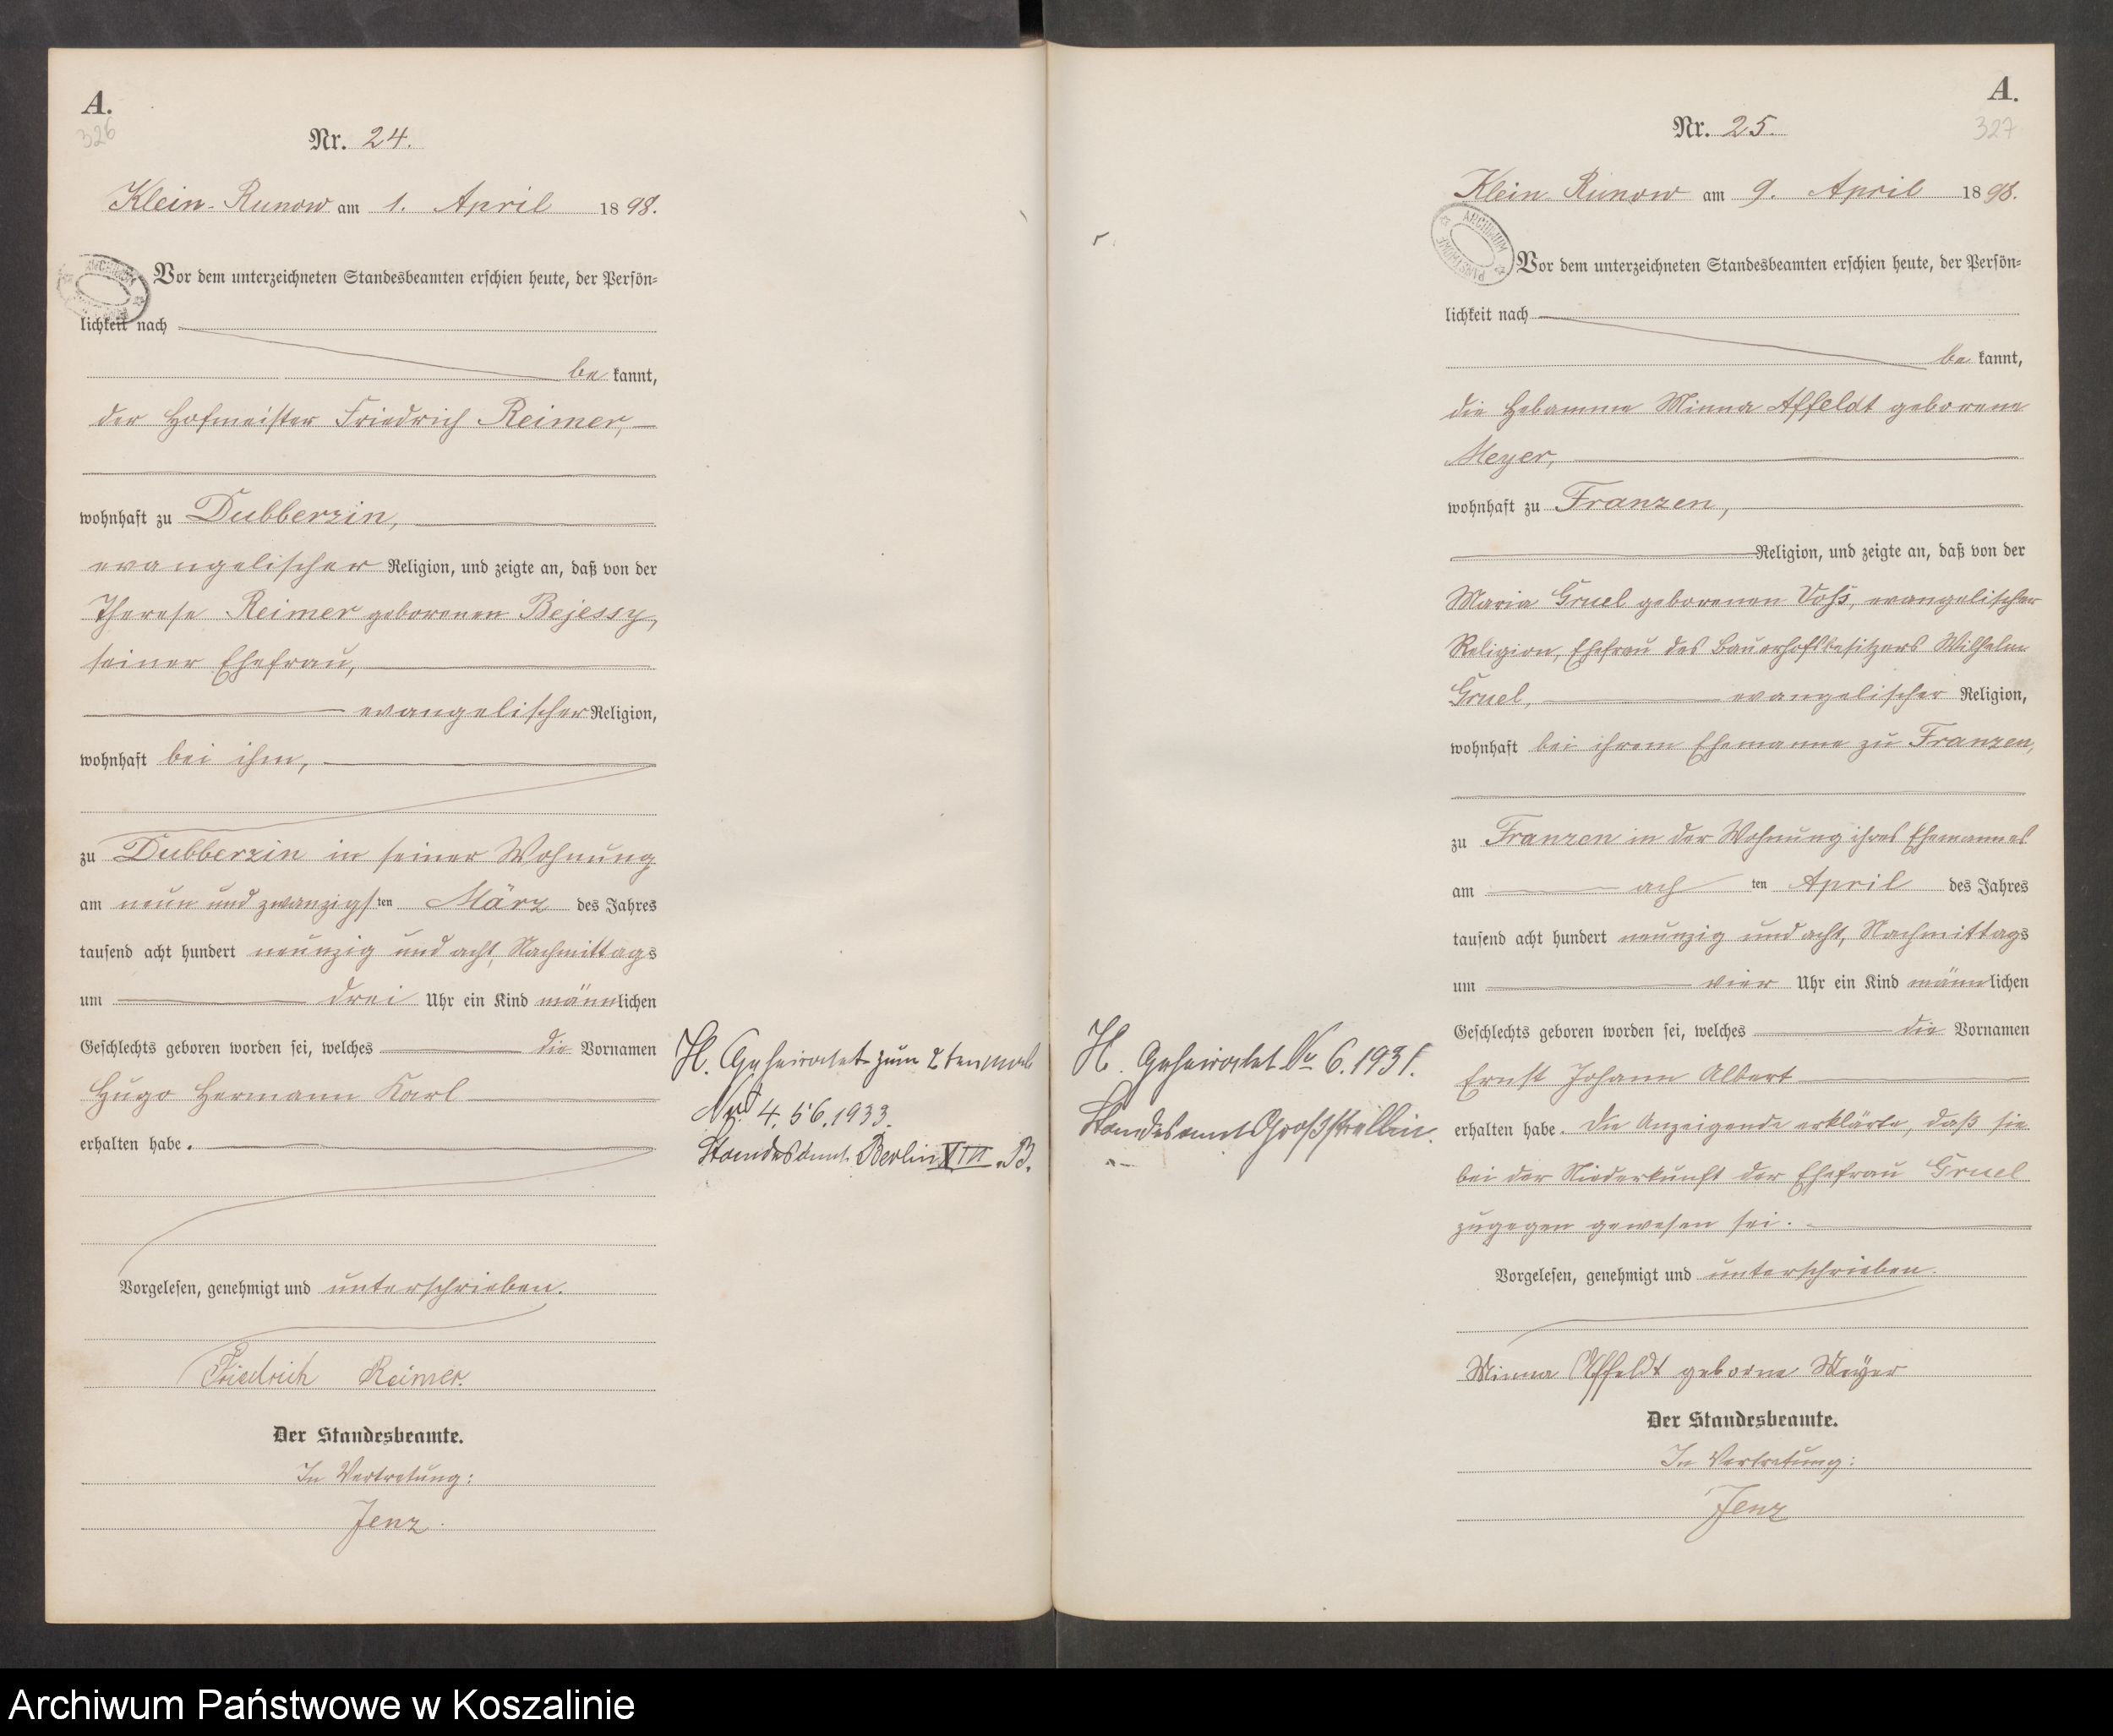 A.
326
Nr. 24.
Klein-Runow am 1. April 1898.
Vor dem unterzeichneten Standesbeamten erschien heute, der Persön=
lichkeit nach
be kannt,
der Hofmeister Friedrich Reimer,
wohnhaft zu Dubberzin,
evangelischer Religion, und zeigte an, daß von der
Therese Reimer geborenen Bejessy,
seiner Ehefrau,
evangelischer Religion,
wohnhaft bei ihm,
zu Dubberzin in seiner Wohnung
am neun und zwanzigsten März des Jahres
tausend acht hundert neunzig und acht, Nachmittags
um drei Uhr ein Kind männlichen
Geschlechts geboren worden sei, welches die Vornamen
Hugo Hermann Karl
erhalten habe.
Vorgelesen, genehmigt und unterschrieben.
Friedrich Reimer.
Der Standesbeamte.
In Vertretung:
Jenz.
H. Geheiratet zum 2tenmal
4.56.1933.
Standesamt Berlin XIII.B.
A.
327
Nr. 25.
Klein-Runow am 9. April 1898.
ARCHIWUM
Vor dem unterzeichneten Standesbeamten erschien heute, der Persön=
lichkeit nach
be kannt,
die Hebamme Minna Affeldt geborene
Meyer,
wohnhaft zu Franzen,
Religion, und zeigte an, daß von der
Maria Gruel geborenen Voß, evangelischer
Religion, Ehefrau des Bauerhofsbesitzers Wilhelm
Gruel, evangelischer Religion,
wohnhaft bei ihrem Ehemanne zu Franzen,
zu Franzen in der Wohnung ihres Ehemannes
am ach ten April des Jahres
tausend acht hundert neunzig und acht, Nachmittags
um vier Uhr ein Kind männlichen
Geschlechts geboren worden sei, welches die Vornamen
Ernst Johann Albert
erhalten habe. Die Anzeigende erklärte, daß sie
bei der Niederkunft der Ehefrau Gruel
zugegen gewesen sei.
Vorgelesen, genehmigt und unterschrieben.
Minna Affeldt geborne Meyer
Der Standesbeamte.
In Vertretung:
Jenz
H. Geheiratet No 6.1931.
Standesamt Großstrellin.
Archiwum Państwowe w Koszalinie